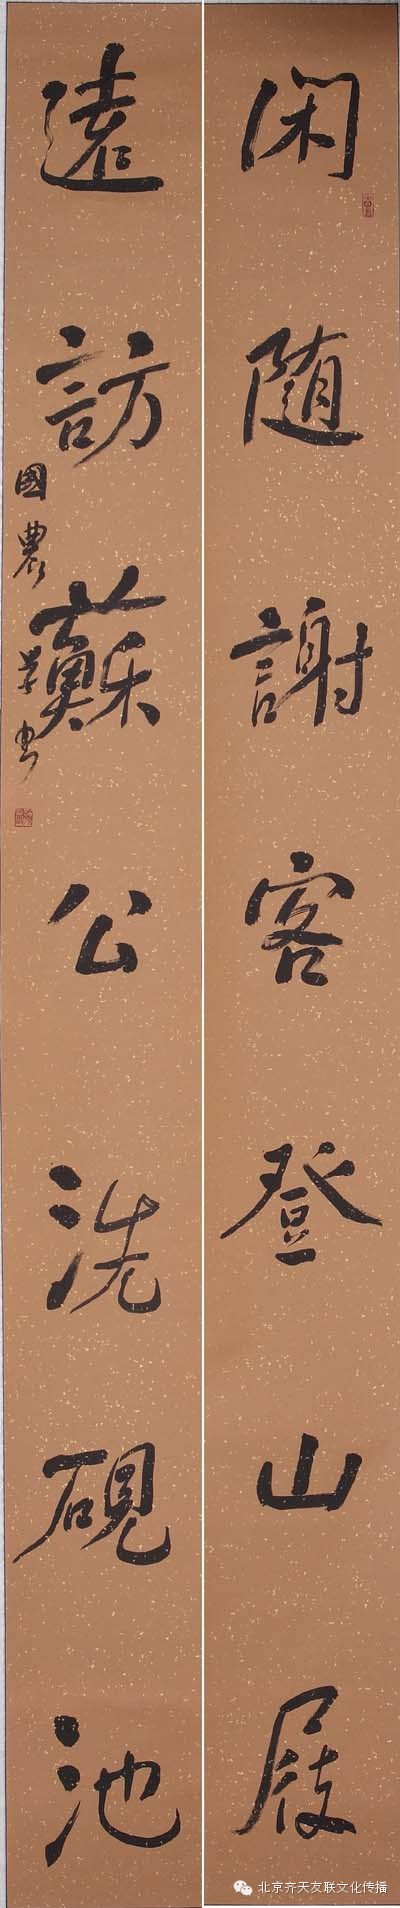 闲随謝客登山屐
遠訪蘇公洗硯池
國農學书
北京齐天友联文化传播